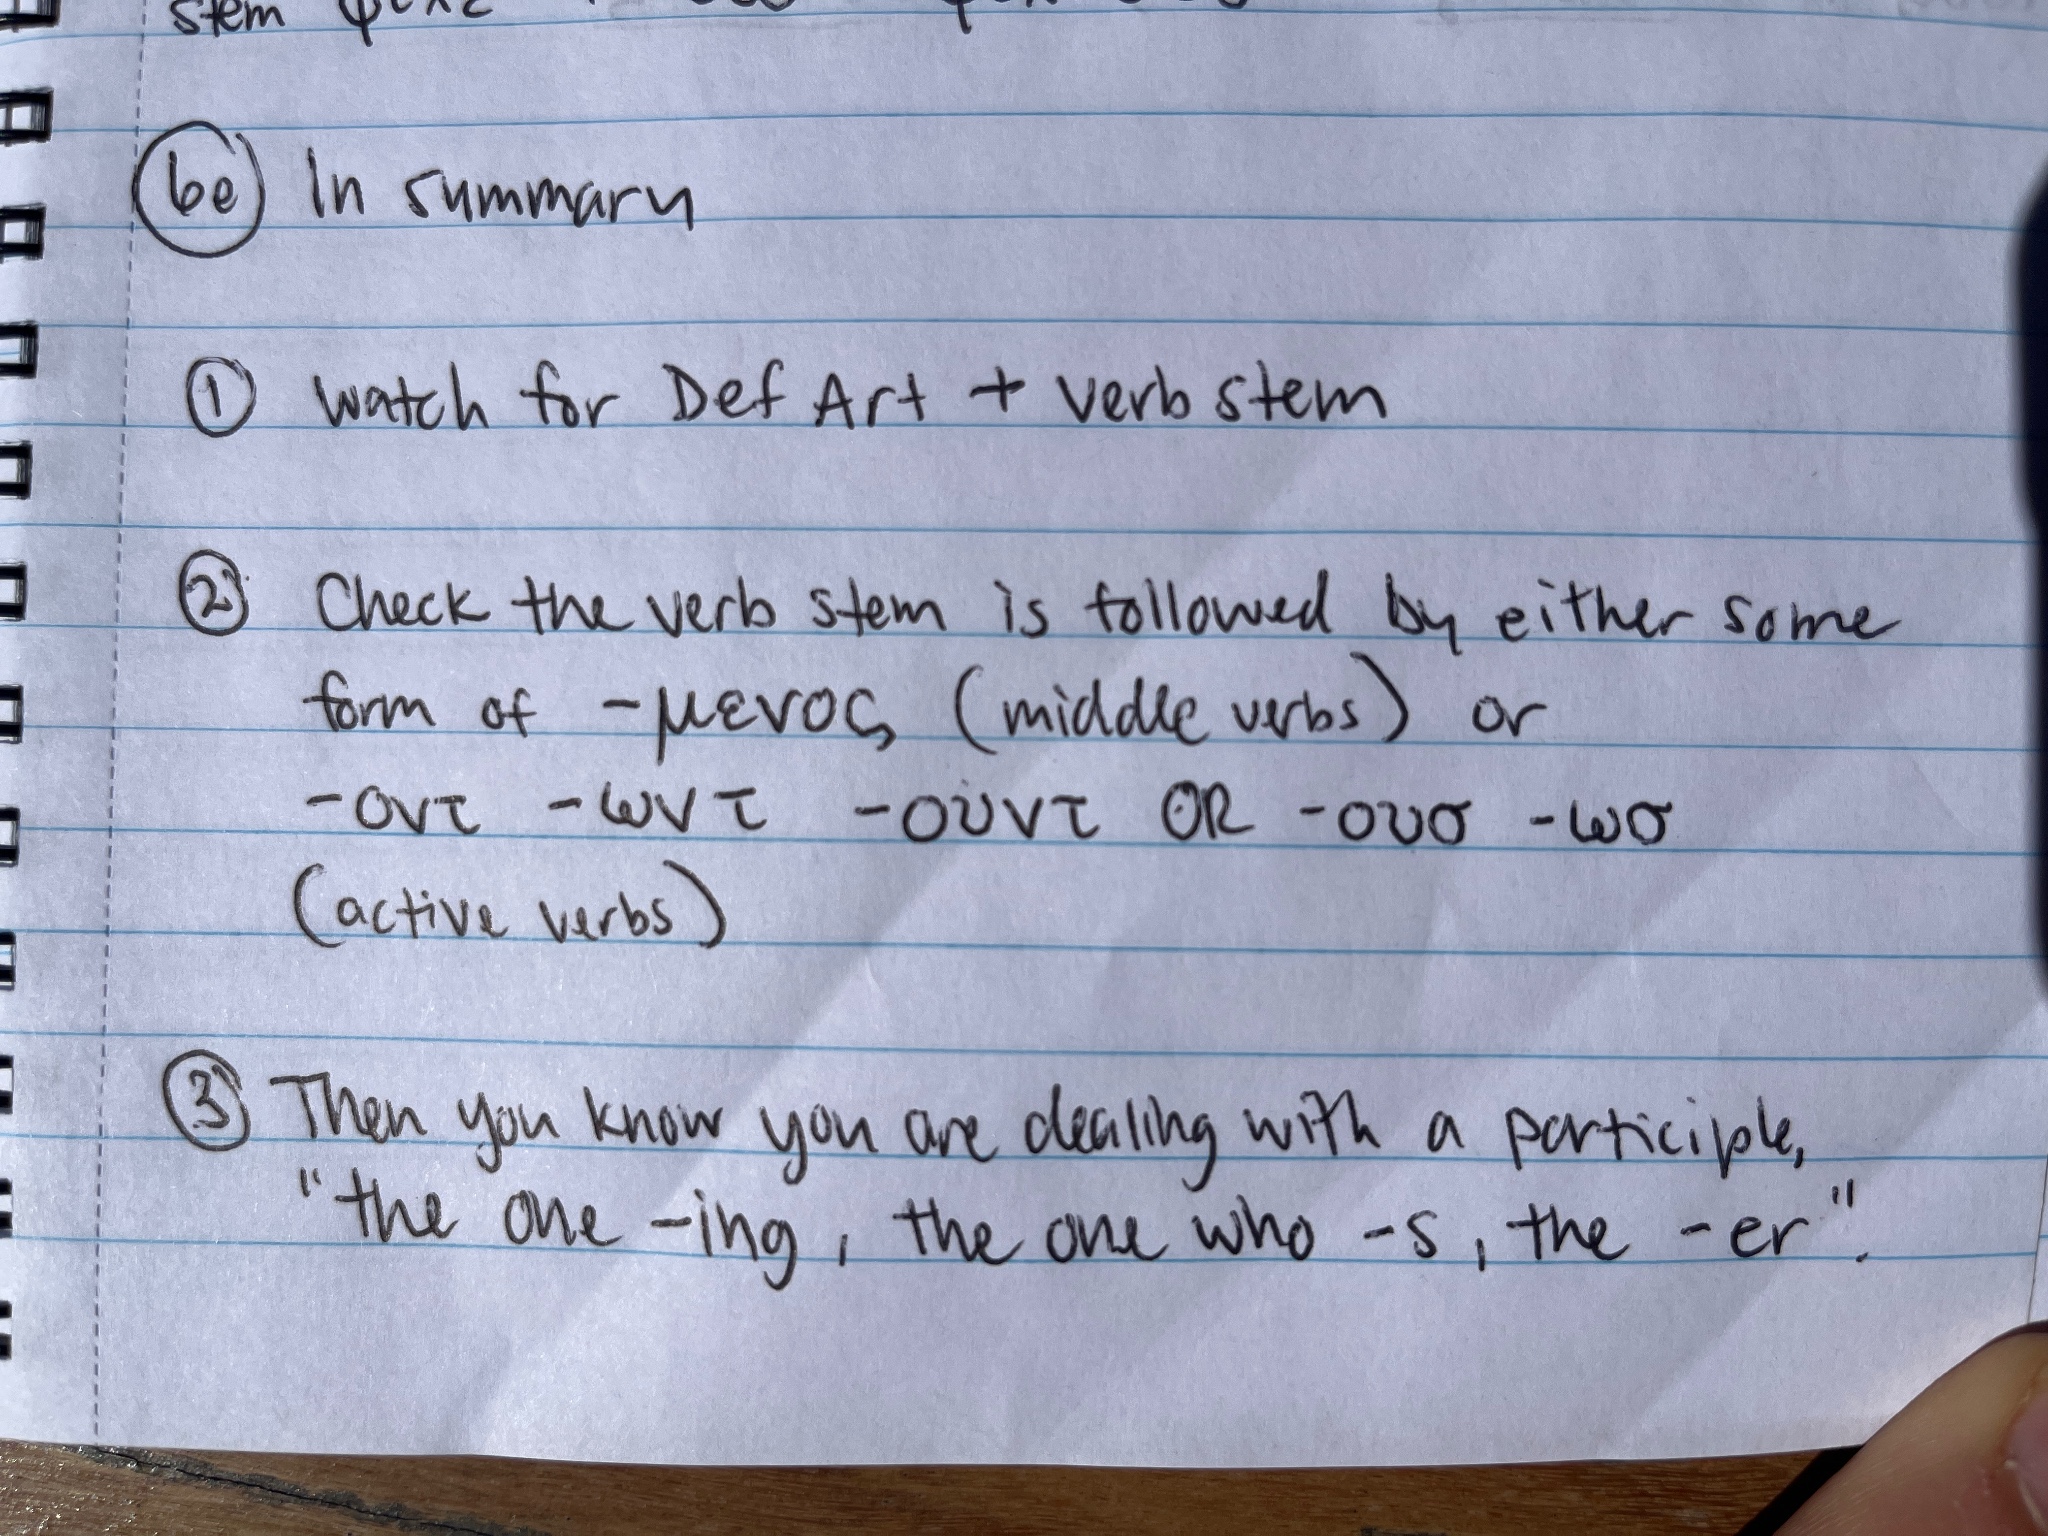 stem
6e In summary
1 Watch for Def Art + verb stem
2 Check the verb stem is followed by either some
form of -μενος (middle verbs) or
-οντ -ωντ -ουντ OR -ουσ -ωσ
(active verbs)
3 Then you know you are dealing with a participle,
"the one -ing, the one who -s, the -er".